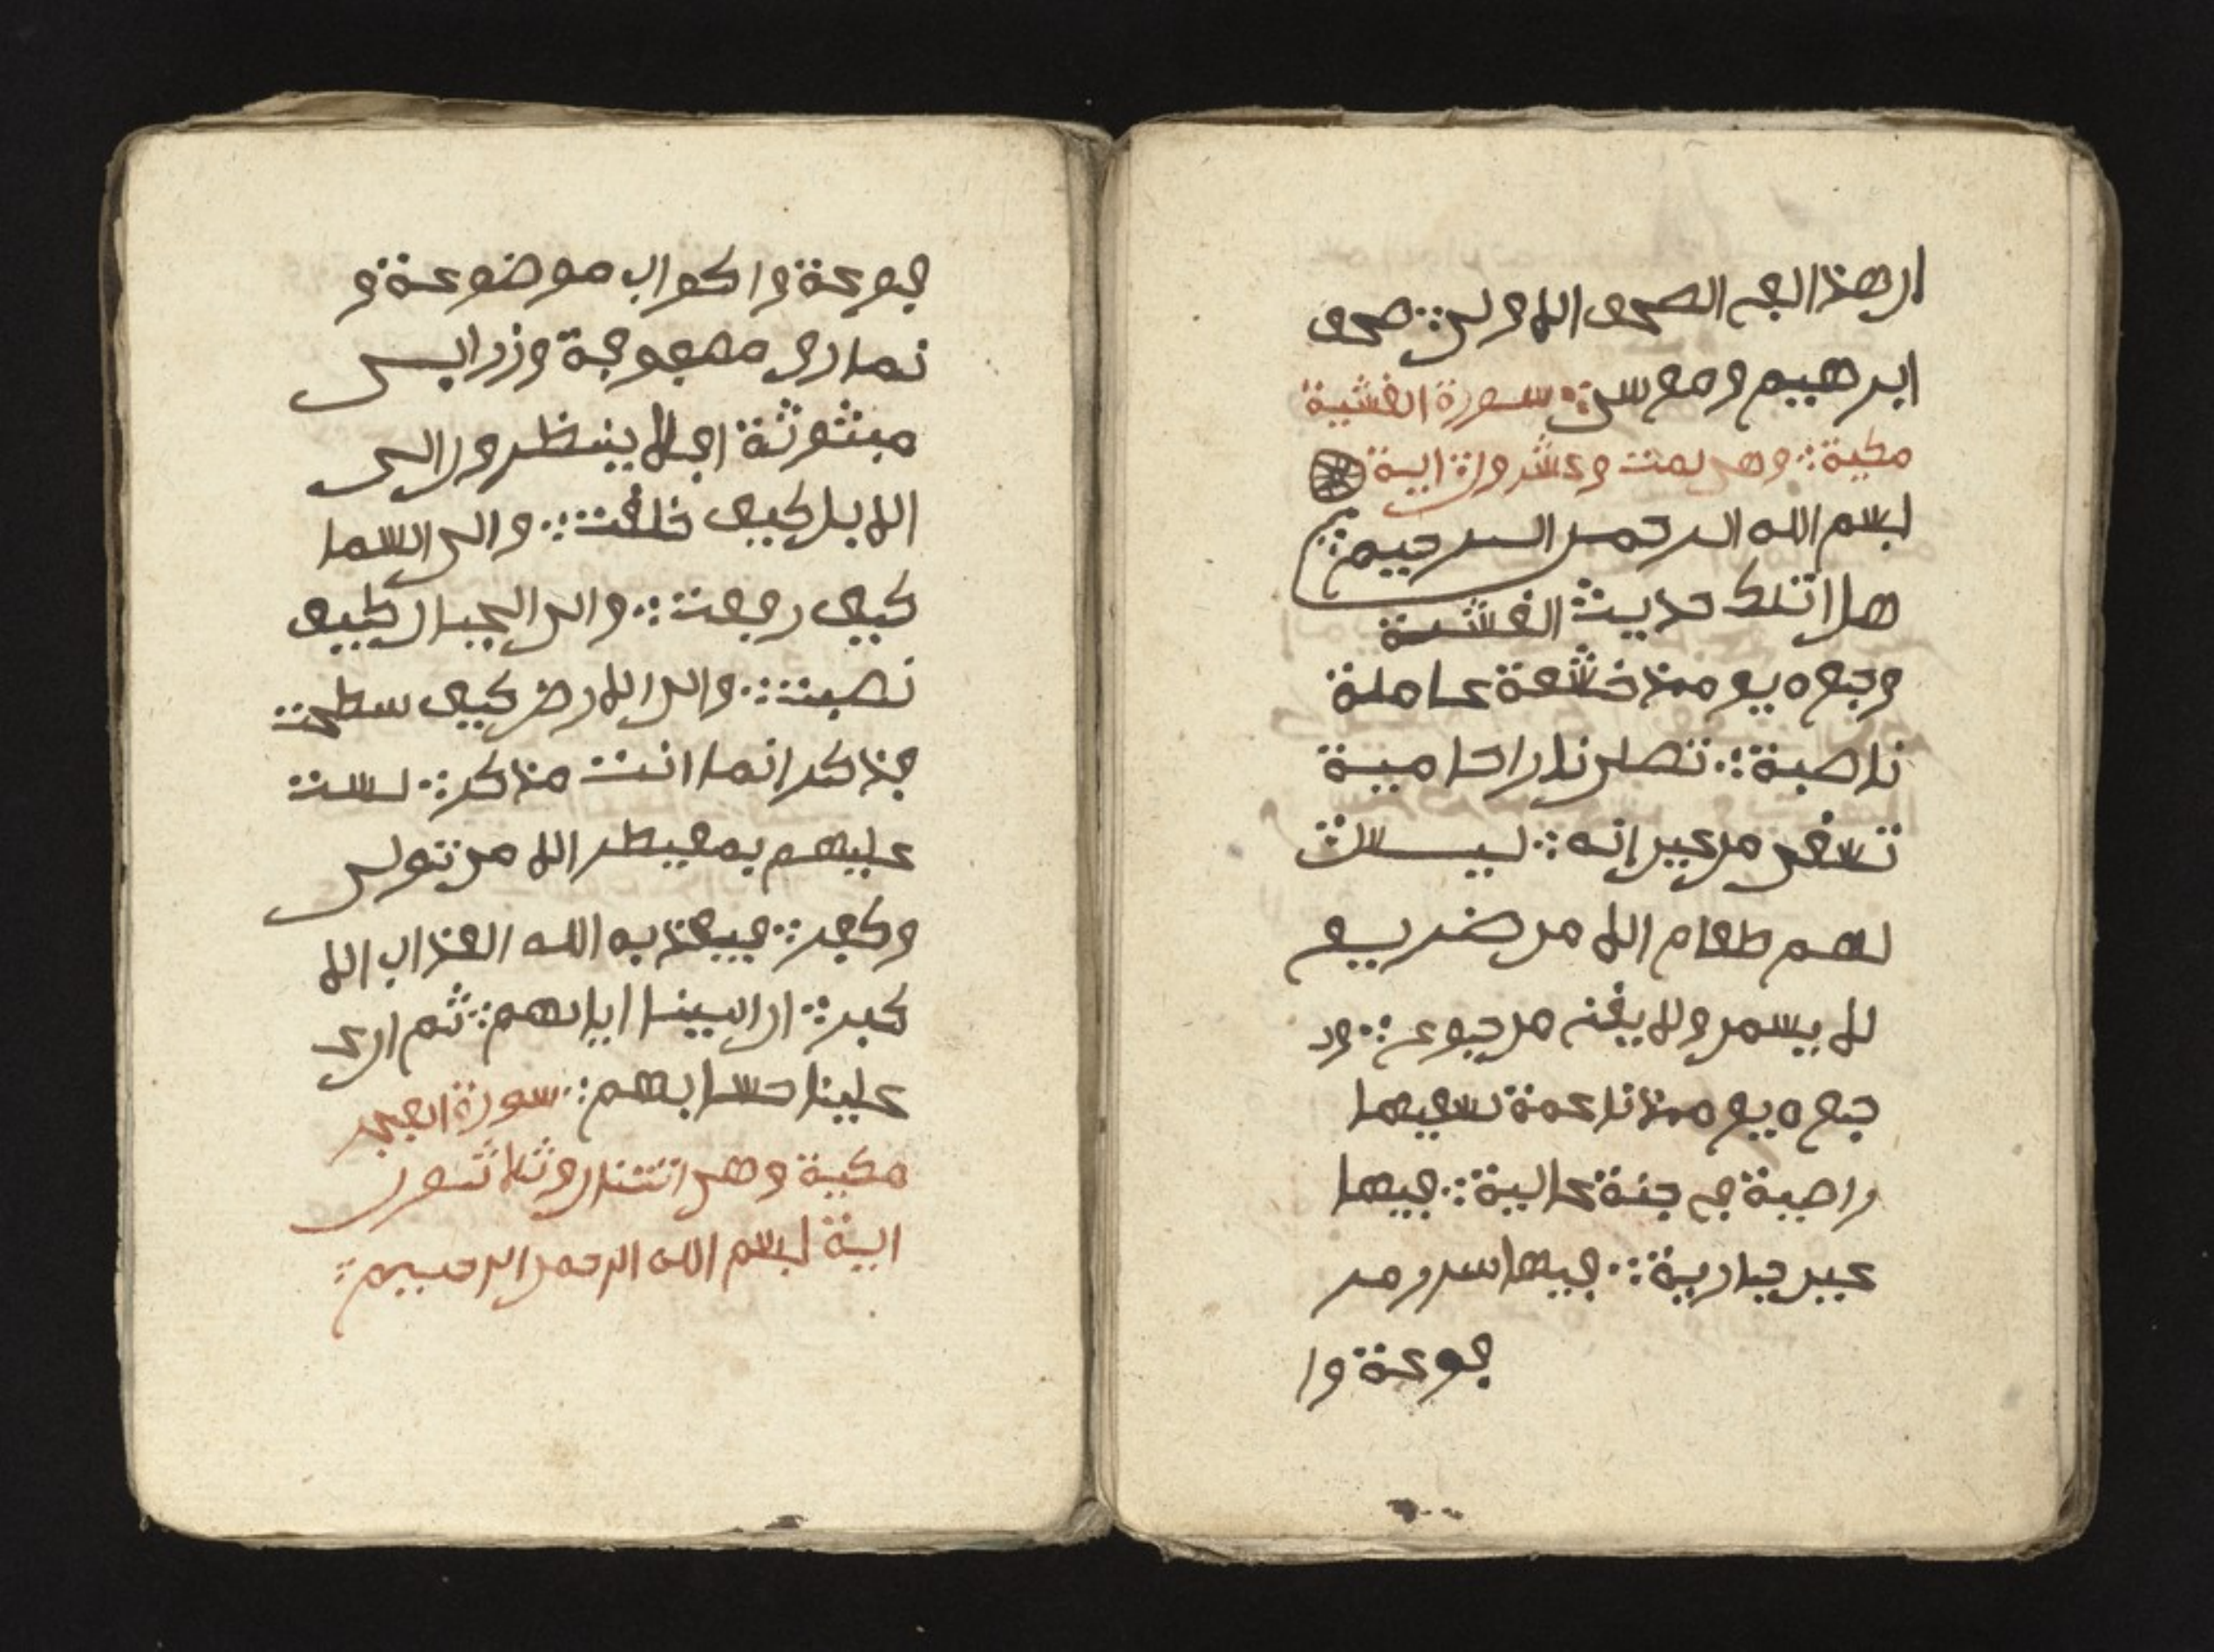 ان هذا لفي الصحف الاولى ∴ صحف
ابرهيم وموسى ∴ سورة الغشية
مكية ∴ وهي ست وعشرون اية
بسم الله الرحمن الرحيم ∴
هل اتىك حديث الغشية
وجوه يومئذ خشعة عاملة
ناصبة ∴ تصلى نارا حامية
تسقى من عين انه ∴ ليست
لهم طعام الا من ضريع
لا يسمن ولا يغني من جوع ∴ و
جوه يومئذ ناعمة لسعيها
راضية في جنة عالية ∴ فيها
عين جارية ∴ فيها سرر مر
فوعة وا
فوعة واكواب موضوعة و
نمارق مصفوفة وزرابي
مبثوثة افلا ينظرون الى
الابل كيف خلقت ∴ والى السما
كيف رفعت ∴ والى الجبال كيف
نصبت ∴ والى الارض كيف سطحت
فذكر انما انت مذكر ∴ لست
عليهم بمصيطر الا من تولى
وكفر ∴ فيعذبه الله العذاب الا
كبر ∴ ان الينا ايابهم ∴ ثم ان ع
علينا حسابهم ∴ سورة الفجر
مكية وهي اثنتان وثلاثون
اية بسم الله الرحمن الرحيم ∴